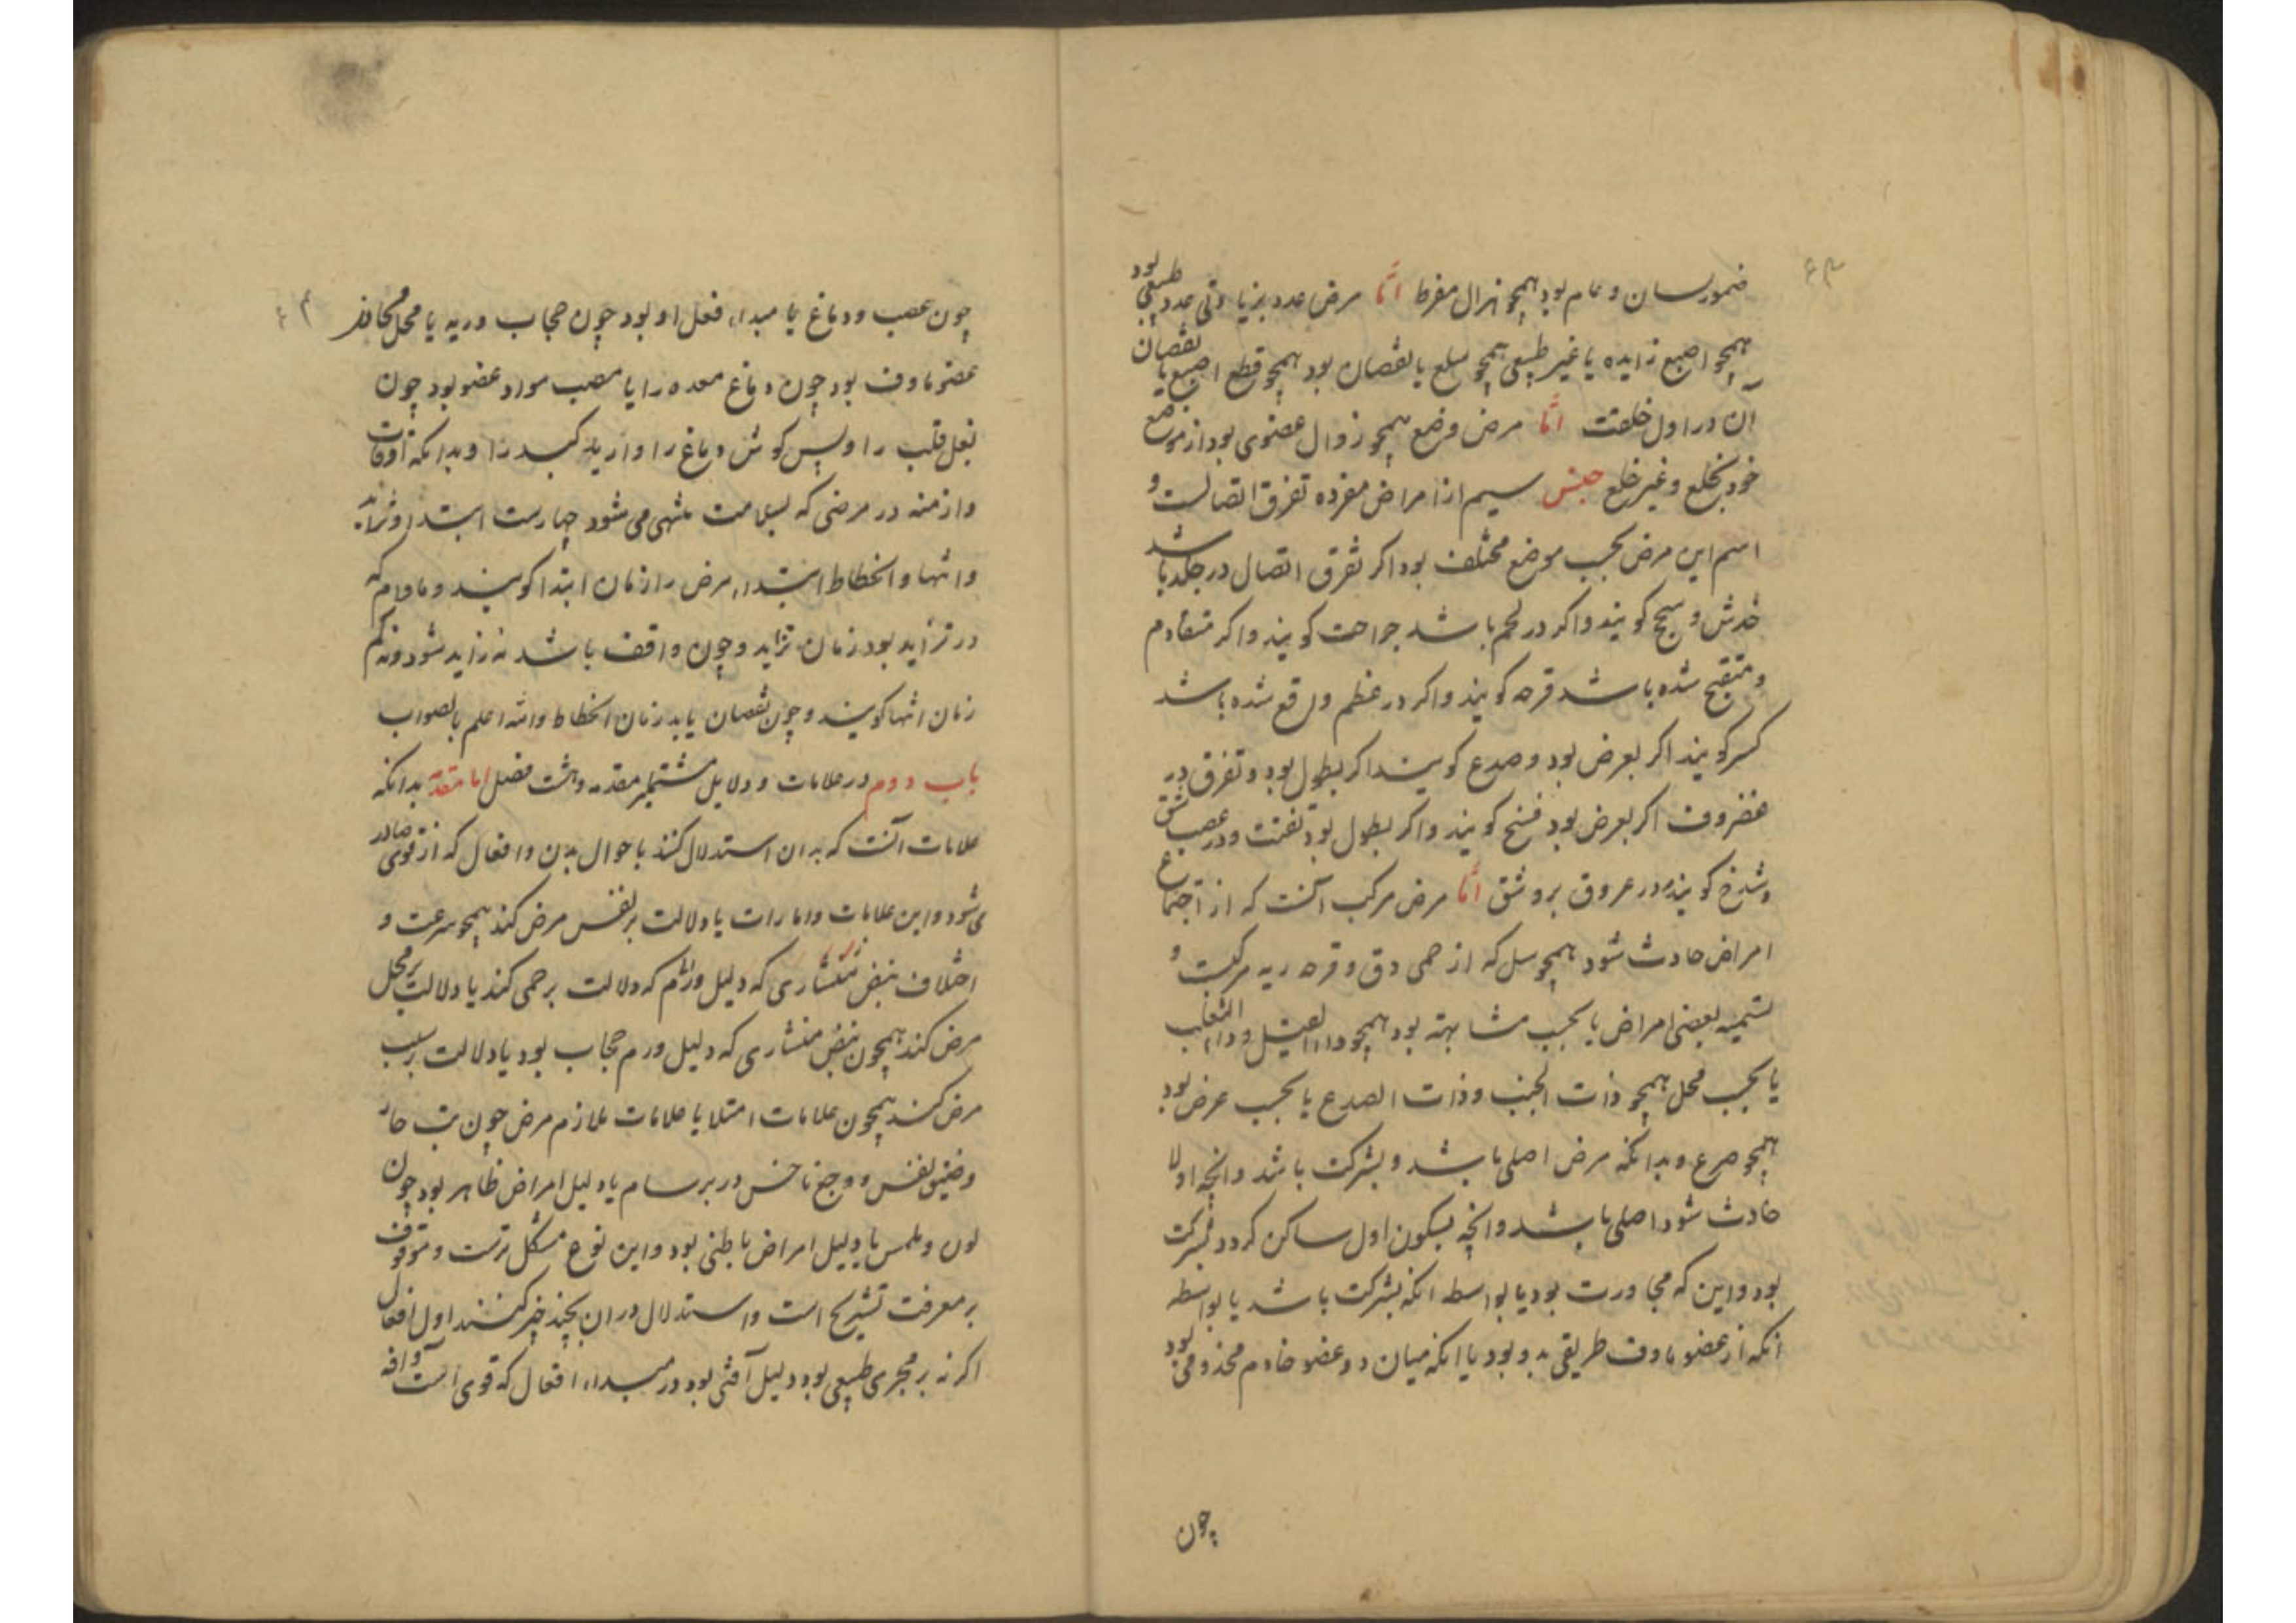 ضمور لسان و عام بود همچو هزال مفرط اما مرض عدد بزیادتی عدد طبیعی بود
همچو اصبع زایده یا غیر طبیعی همچو سلع یا نقصان بود همچو قطع اصبع یا نقصان
آن در اول خلقت اما مرض وضع همچو زوال عضوی بود از موضع
خود بخلع و غیر خلع جنس سیم از امراض مفرده تفرق اتصالست و
اسم این مرض بحسب موضع مختلف بود اگر تفرق اتصال در جلد باشد
خدش و سحج گویند و اگر در لحم باشد جراحت گویند و اگر متقادم
و متقیح شده باشد قرحه گویند و اگر در عظم واقع شده باشد
کسر گویند اگر بعرض بود و صدع گویند اگر بطول بود و تفرق در
غضروف اگر بعرض بود فسخ گویند و اگر بطول بود تفتت و در عصب شق
و شدخ گویند و در عروق بر و شق اما مرض مرکب آنست که از اجتماع
امراض حادث شود همچو سل که از حمی دق و قرحه ریه مرکبست و
تسمیه بعضی امراض یا بحسب مشابهة بود همچو داء الفیل و داء الثعلب
یا بحسب محل همچو ذات الجنب و ذات الصدع یا بحسب عرض بود
همچو صرع و بدانکه مرض اصلی باشد و بشرکت باشد و آنچه اولا
حادث شود اصلی باشد و آنچه بسکون اول ساکن گردد بشرکت
بود و این که مجاورت بود یا بواسطه انکه بشرکت باشد یا بواسطه
انکه از عضو ماوف طریقی بدو بود یا انکه میان دو عضو خادم مخدومی بود
چون
چون عصب و دماغ یا مبداء فعل او بود چون حجاب و ریه یا محل مجاور
عضو ماوف بود چون دماغ معده را یا مصب مواد عضو بود چون
بغل قلب را و پس گوش دماغ را و اربیه کبد را و بدانکه اوقات
و ازمنه در مرضی که بسلامت منتهی می شود چهارست ابتدا و تزاید
و انتها و انحطاط ابتداء مرض را زمان ابتدا گویند و مادام که
در تزاید بود زمان تزاید و چون واقف باشد نه زاید شود و نه کم
زمان انتها گویند و چون نقصان یابد زمان انحطاط والله اعلم بالصواب
باب دوم در علامات و دلایل مشتملبر مقدمه و هشت فصل اما مقدمه بدانکه
علامات آنست که بدان استدلال کنند باحوال بدن و افعال که از قوی صادر
می شود و این علامات و امارات یا دلالت بر نفس مرض کند همچو سرعت و
اختلاف نبض منشاری که دلیل ورم که دلالت بر حمی کند یا دلالت بر محل
مرض کند همچون نبض منشاری که دلیل ورم حجاب بود یا دلالت بر سبب
مرض کند همچون علامات امتلا یا علامات ملازم مرض چون تب حار
و ضیق نفس و وجع ناخس در برسام یا دلیل امراض ظاهر بود چون
لون و ملمس یا دلیل امراض باطنی بود و این نوع مشکل ترست و موقوف
بر معرفت تشریح است و استدلال در ان بچند چیز کنند اول افعال
اگر نه بر مجری طبیعی بود دلیل آفتی بود در مبداء افعال که قوی است و افه